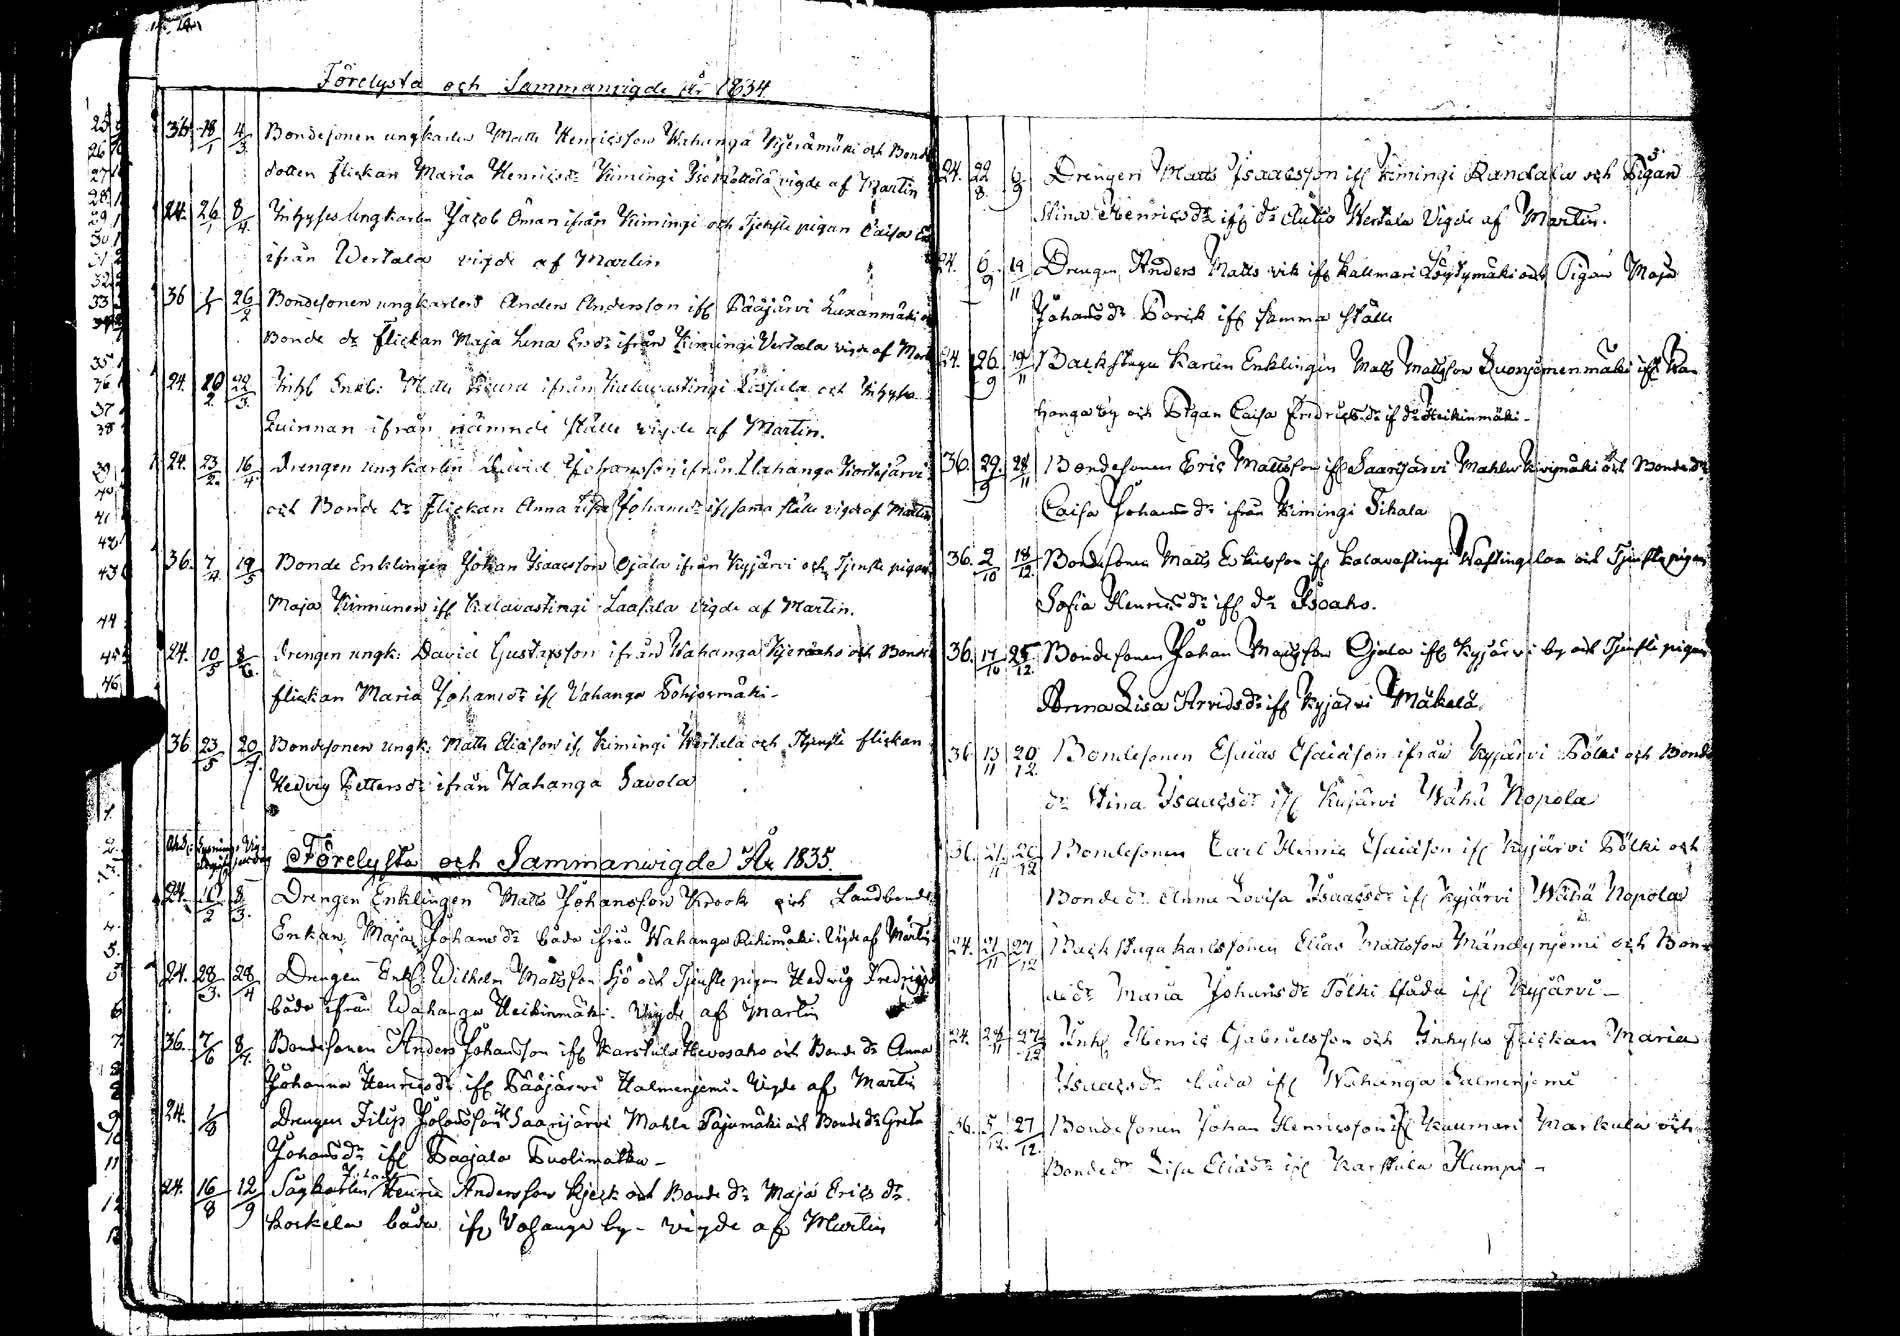 Förelysta och Sammanvigde År 1834.
36. 18/1 4/3 Bondesonen ungkarlen Matts Henricsson Wahanga Kjerämäki och Bonde
dotten flickan Maria Henricsdr Kimingi vigde af Martin
24. 26/1 8/4 Inhyses Ungkarlen Jacob Öman ifrån Kimingi och Tjenste pigan Caisa
ifrån Wertala vigde af Martin
36 26/2 Bondesonen ungkarlen Anders Andersson if Pääjärvi Luxanmäki
Bonde dr flickan Maja Lena Ersdr ifrån Kimingi Vertala vigde af Mart
24. 20/2 Enkl: ifrån och Inhyses
Quinnan ifrån nämnde ställe vigde af Martin.
24. 23/2. 16/4. Drengen ungkarlen David Johansson ifrån Wahanga
och Bonde dr flickan Anna Lisa Johansdr if samma ställe vigde af Martin
36. 7/4. 19/5 Bonde Enklingen Johan Isaacsson Ojala ifrån Kyjärvi och Tjenste pigan
Maja Kinnunen if Kalavastingi Laasala vigde af Martin.
24. 10/5 8/6. Drengen ungk: David Gustafsson ifrån Wahanga Kjeräaho och Bonde
flickan Maria Johansdr if Vahanga Pohjosmäki-
36 23/5 20/7 Bondesonen ungk: Matts Eliasson if Kimingi Wertala och Tjenste flickan
Hedvig Pettersdr ifrån Wahanga Savola
Förelysta och Sammanwigde År 1835.
24. 8/3. Drengen Enklingen Matts Johansson Krook och Landbonde
Enkan Maja Johansdr båda ifrån Wahanga Rikimäki. Vigde af Martin
24. 28/3. 28/4 Drengen Enkl: Wilhelm Mattsson Sjö och Tjenste pigan Hedwig Fredricsdr
båda ifrån Wahanga Heikinmäki. Vigde af Martin
36. 7/6 8/7. Bondesonen Anders Johansson if Karstula Hevosaho och Bonde dr Anna
Johanna Henricsdr if Pääjärvi Halmenjemi. Vigde af Martin
24. 1/8 Drengen Filip Johansson if Saarijärvi Mahlu Pajumäki och Bonde dr Greta
Johansdr if Pääjala Puolimatka-
24. 16/8 12/9 Sågkarlen Henric Andersson Kjeck och Bonde dr Maja Erics dr.
Korkela båda if Vahanga by- vigde af Martin
24. 22/8. 6/9 Drengen Matts Isaacsson if Kimingi Randala och Pigan
Stina Henricsdr if dr Wertala Vigde af Martin.
24. 6/9 19/11 Drengen Anders Matts vik if Kallmari Löytymäki och Pigan Maja
Johansdr Porick if samma ställe
24. 26/9 19/11 Backstugu Karlen Enklingen Matts Mattsson Ruonjemenmäki if Wa
hanga by och Pigan Caisa Fredricsdr if dr Heikinmäki-
36. 29/9 28/11 Bondesonen Eric Mattsson if Saarijärvi Mahlu Kivimäki och Bonde dr
Caisa Johansdr ifrån Kimingi Sikala
36. 2/10 18/12. Bondesonen Matts Eskilsson if Kalavastingi Wastingelax och Tjenste pigan
Sofia Henricsdr if dr Isoaho.
36. 17/10 25/12. Bondesonen Johan Mattsson Ojala if Kyjärvi by och Tjenste pigan
Anna Lisa Arvidsdr if Kyjärvi Mäkelä.
36 13/11 20/12. Bondesonen Esaias Esaiasson ifrån Kyjärvi Pölki och Bonde
dr Stina Isaacsdr if Kyjärvi Wähä Nopola
36. 21/11 26/12 Bondesonen Carl Henric Esaiasson if Kyjärvi Pölki och
Bonde dr Anna Lovisa Isaacsdr if Kyjärvi Wähä Nopola
24. 21/11 27/12 Backstuga karlssonen Elias Mattsson Mändynjemi och Bon-
de dr Maria Johansdr Pölki båda if Kyjärvi-
24. 28/11 27/12 Inh Henric Gabrielsson och Inhyses Flickan Maria
Isaacsdr båda if Wahanga Salmenjemi
36. 5/12. 27/12. Bondesonen Johan Henricsson if Kallmari Markula och
Bonde dr Lisa Eliaedr if Karstula Humpi-